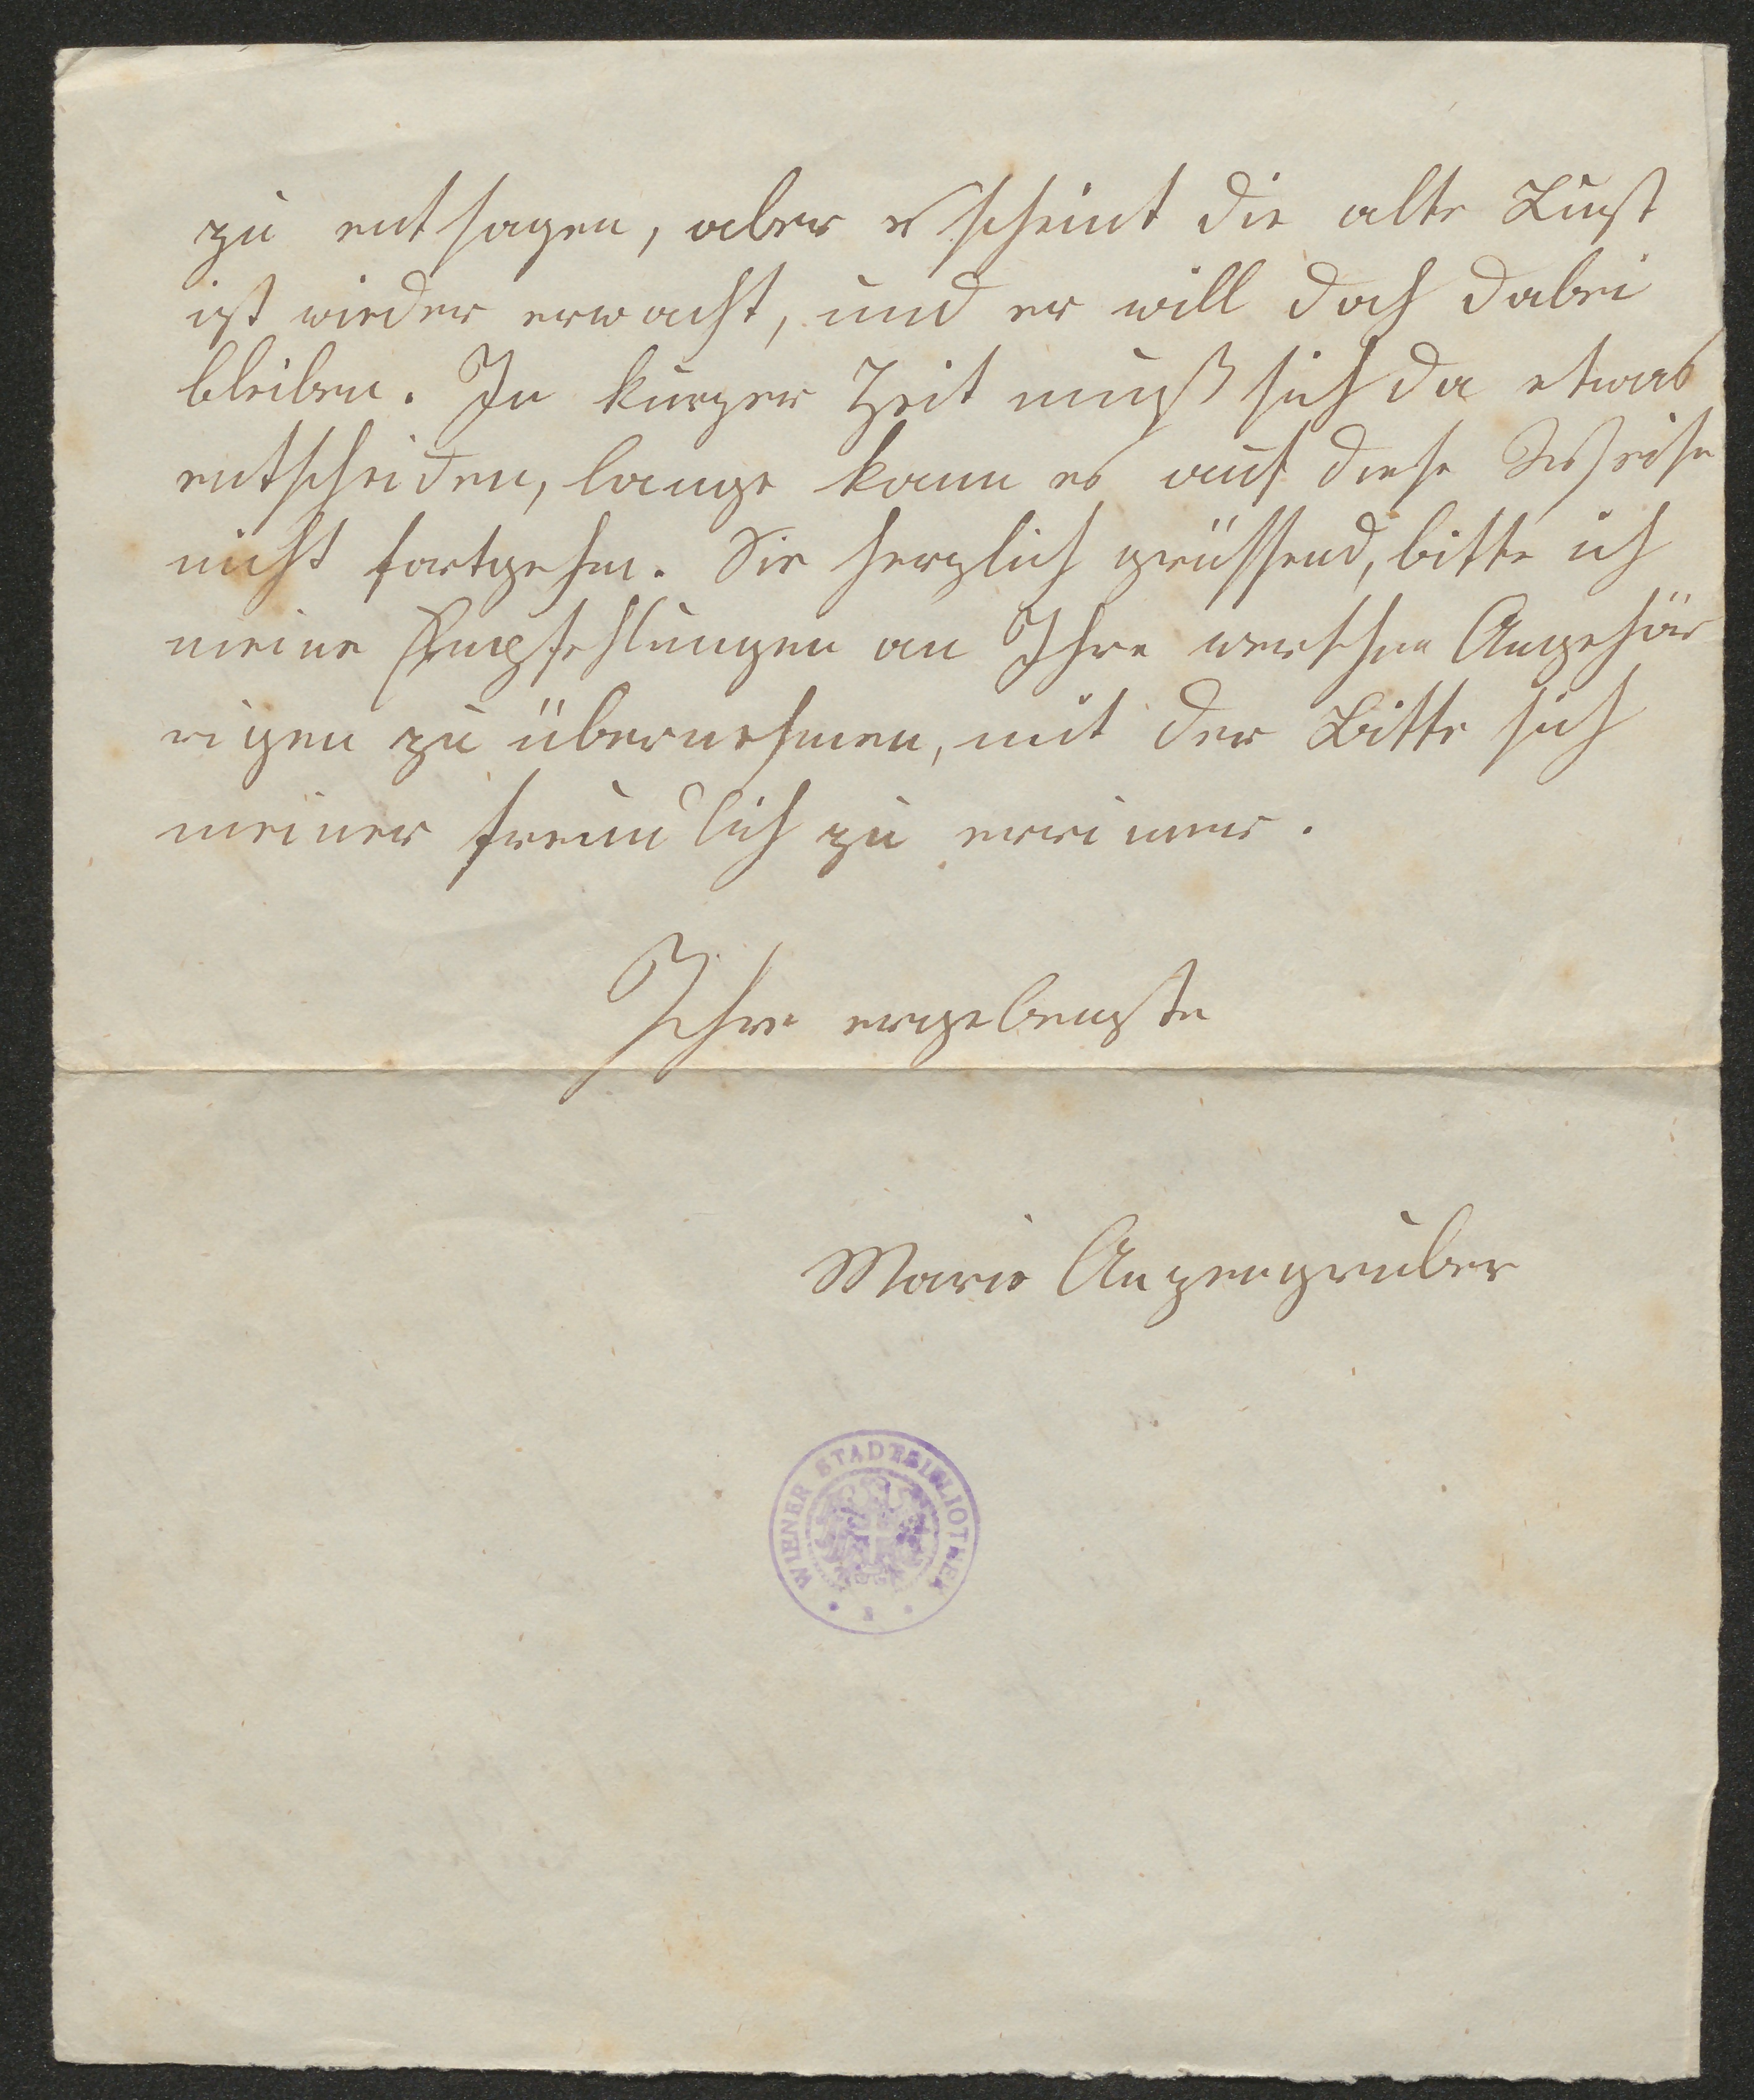 zu entsagen, aber es scheint die alte Lust
ist wieder erwacht, und er will doch dabei
bleiben. In kurzer Zeit muß sich da etwas
entscheiden, lange kann es auf diese Weise
nicht fortgehen. Sie herzlich grüssend, bitte ich
meine Empfehlungen an Ihre werthen Angehör
rigen zu übernehmen, mit der Bitte sich
meiner freundlich zu erinnern.
Ihre ergebenste
Marie Anzengruber
WIENER STADTBIBLIOTHEK